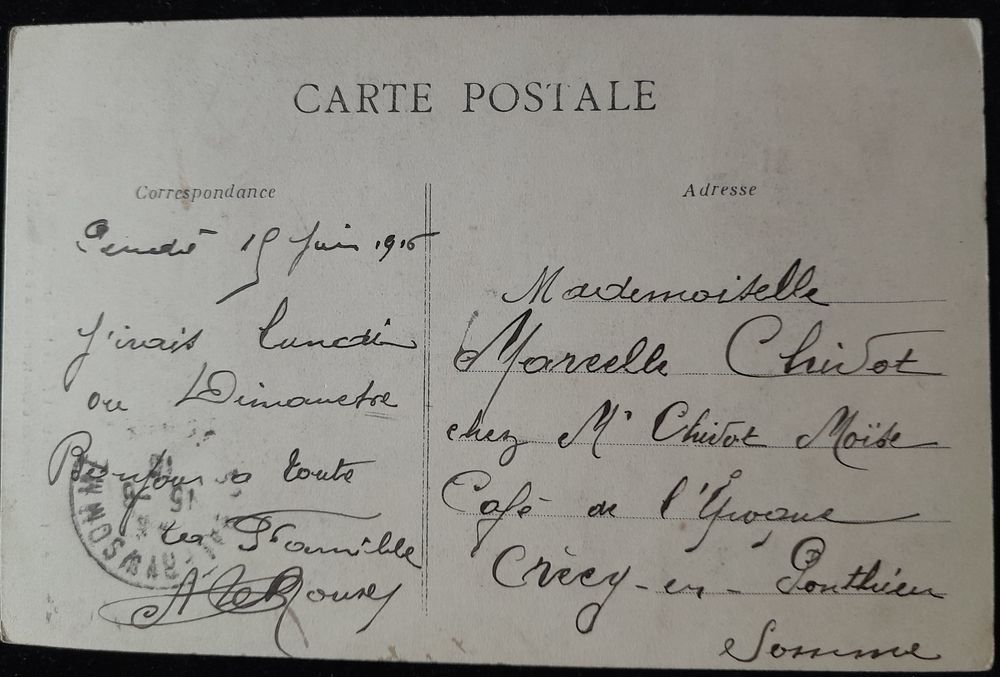 CARTE POSTALE
Correspondance
Adresse
15 Juin 1915
J'irais lundi
ou Dimanche
Bonjour a toute
ta Famille
A.
Mademoiselle
Marcelle Chivot
chez Mr Chivot Moïse
Café de
Crécy-en-Ponthieu
Somme
SOMME